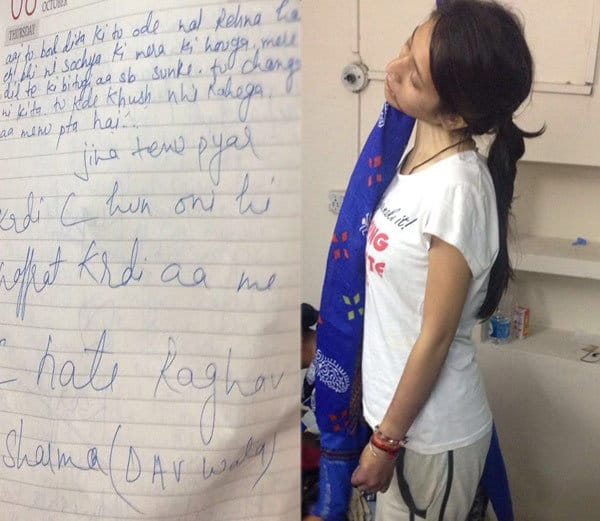 OCTOBER
THURSDAY
aaj tu bol dita ki tu ode nal Rehna ha
ek bhi ni sochya ki mera ki houga. mere
dil te ki bitugi aa sb sunke. tu change
ni kita. tu kde khush nhi Rahega.
aa menu pta hai.
jina tenu pyar
krdi C hun oni hi
naffrat krdi aa me
I hate Raghav
Sharma (DAV wala)
it!